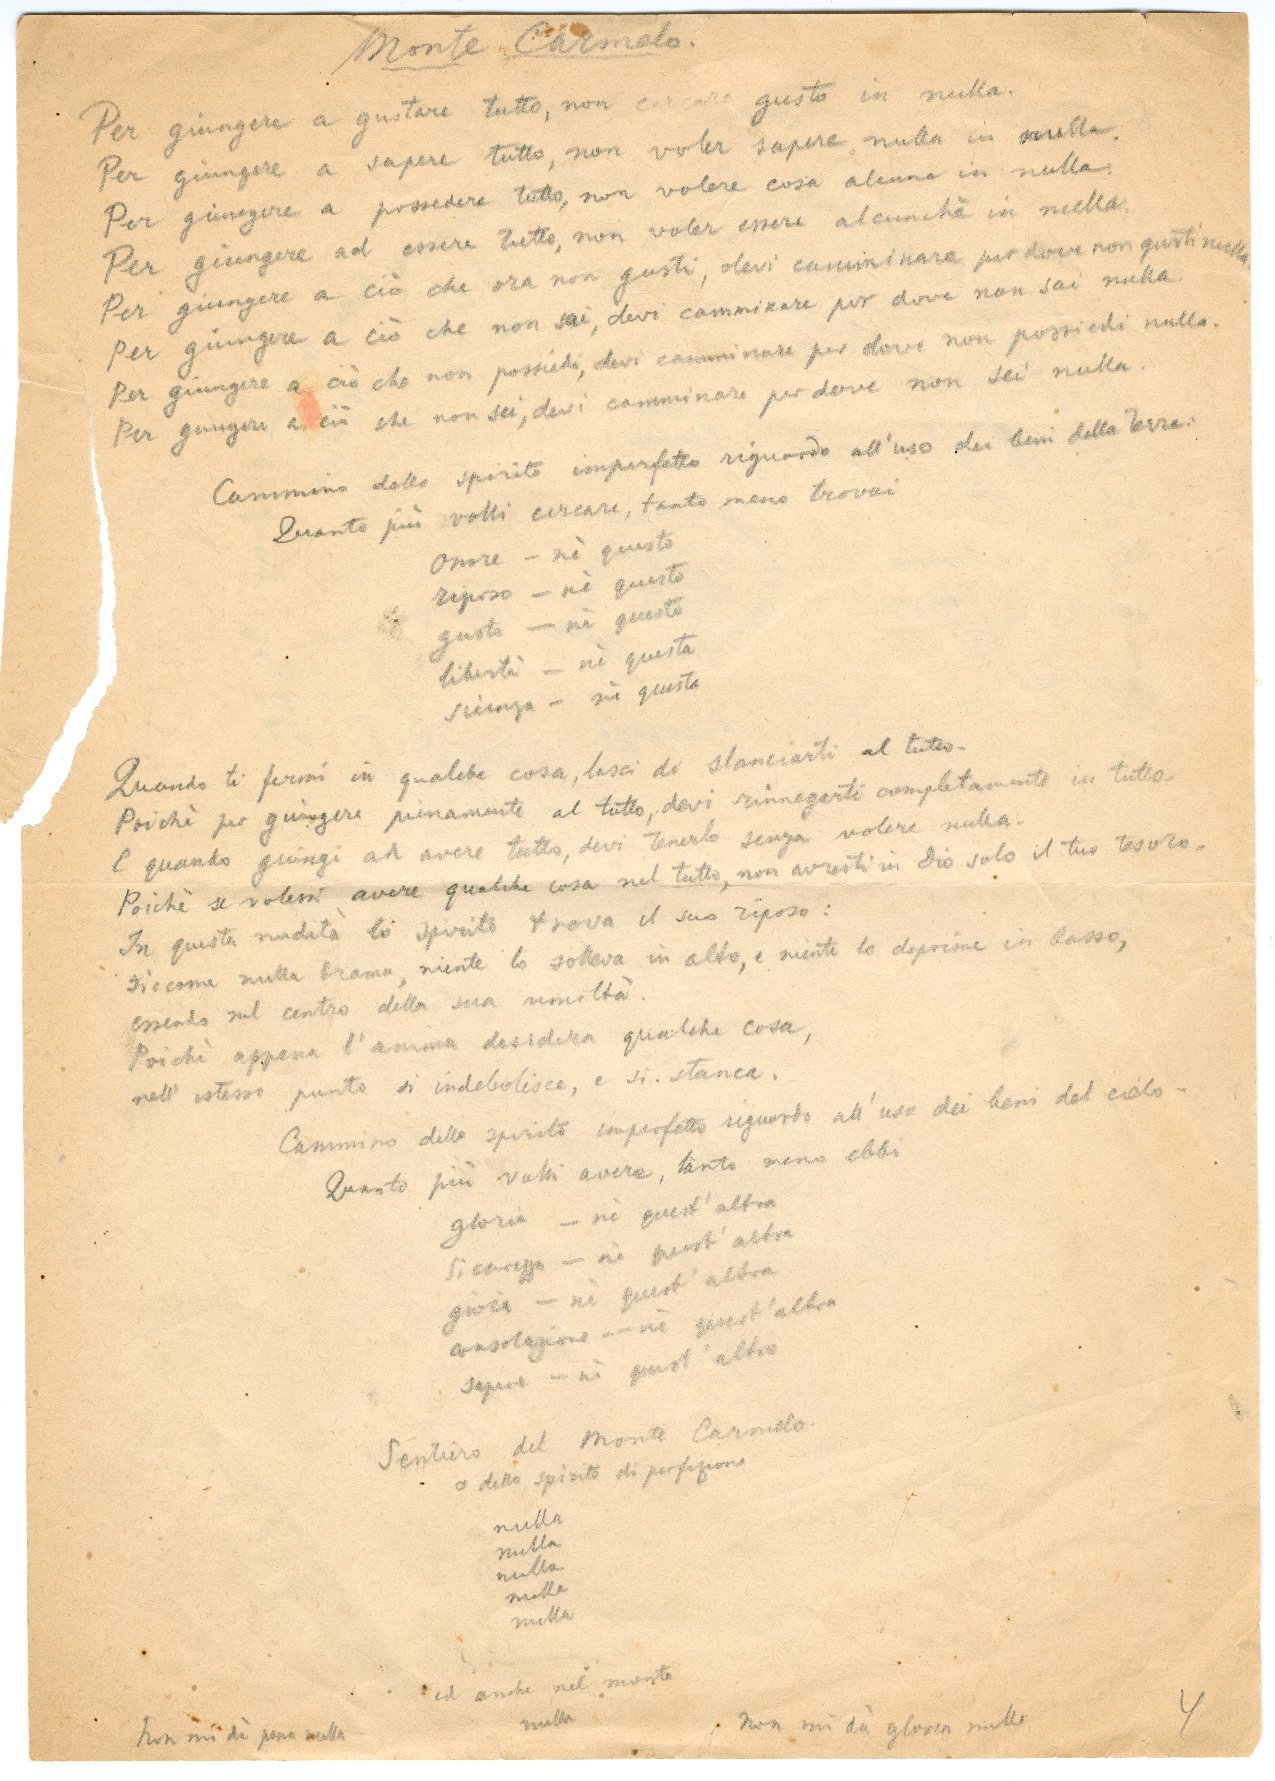 Monte Carmelo.
Per giungere a gustare tutto, non cercare gusto in nulla.
Per giungere a sapere tutto, non voler sapere nulla in nulla.
Per giungere a possedere tutto, non volere cosa alcuna in nulla.
Per giungere ad essere tutto, non voler essere alcunchè in nulla.
Per giungere a ciò che ora non gusti, devi camminare per dove non gusti nulla.
Per giungere a ciò che non sai, devi camminare per dove non sai nulla.
Per giungere a ciò che non possiedi, devi camminare per dove non possiedi nulla.
Per giungere a ciò che non sei, devi camminare per dove non sei nulla.
Cammino dello spirito imperfetto riguardo all'uso dei beni della terra.
Quanto più volli cercare, tanto meno trovai
Onore - nè questo
riposo - nè questo
gusto - nè questo
libertà - nè questa
scienza - nè questa
Quando ti fermi in qualche cosa, lasci di slanciarti al tutto.
Poichè per giungere pienamente al tutto, devi rinnegarti completamente in tutto.
E quando giungi ad avere tutto, devi tenerlo senza volere nulla.
Poichè se volessi avere qualche cosa nel tutto, non avresti in Dio solo il tuo tesoro.
In questa nudità lo spirito trova il suo riposo:
siccome nulla brama, niente lo solleva in alto, e niente lo deprime in basso,
essendo nel centro della sua umiltà.
Poichè appena l'anima desidera qualche cosa,
nell'istesso punto si indebolisce, e si stanca.
Cammino dello spirito imperfetto riguardo all'uso dei beni del cielo -
Quanto più volli avere, tanto meno ebbi
gloria - nè quest'altra
sicurezza - nè quest'altra
gioia - nè quest'altra
consolazione - nè quest'altra
sapere - nè quest'altro
Sentiero del Monte Carmelo.
o dello spirito di perfezione
nulla
nulla
nulla
nulla
nulla
ed anche nel monte
nulla
Non mi dà pena nulla
Non mi dà gloria nulla
4